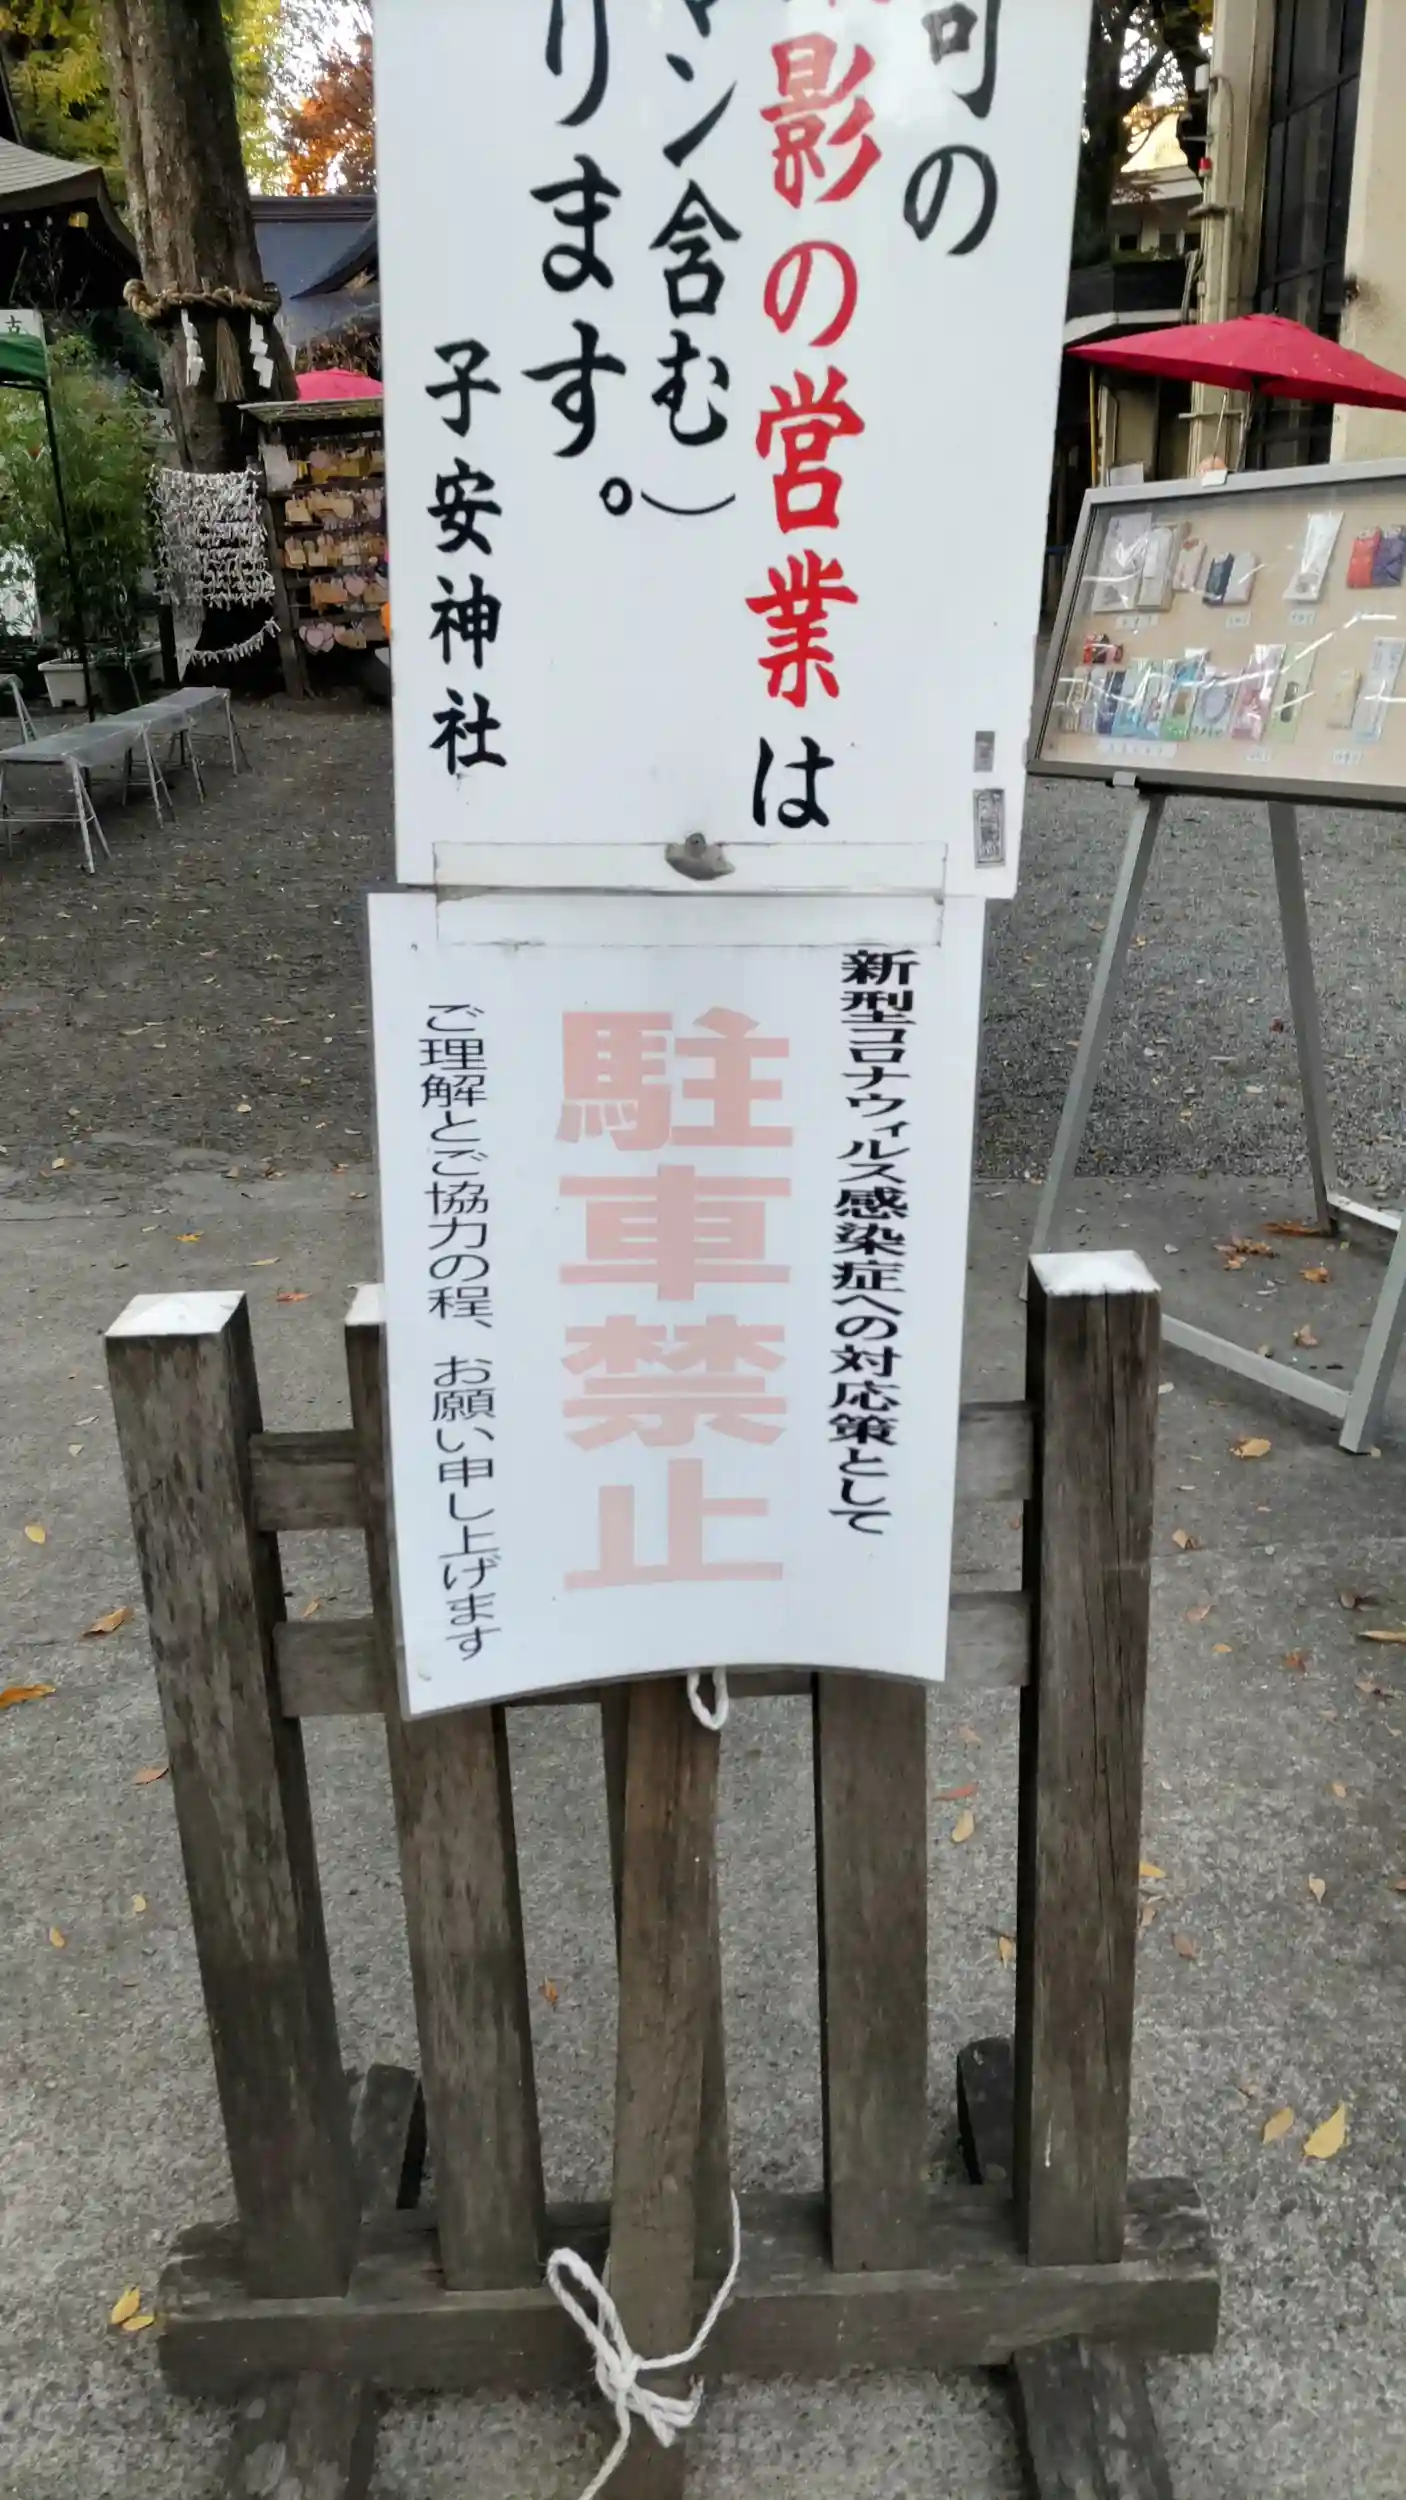 可の
影の営業は
マン含む）
ります。
子安神社
新型コロナウィルス感染症への対応策として
駐車禁止
ご理解とご協力の程、お願い申し上げます